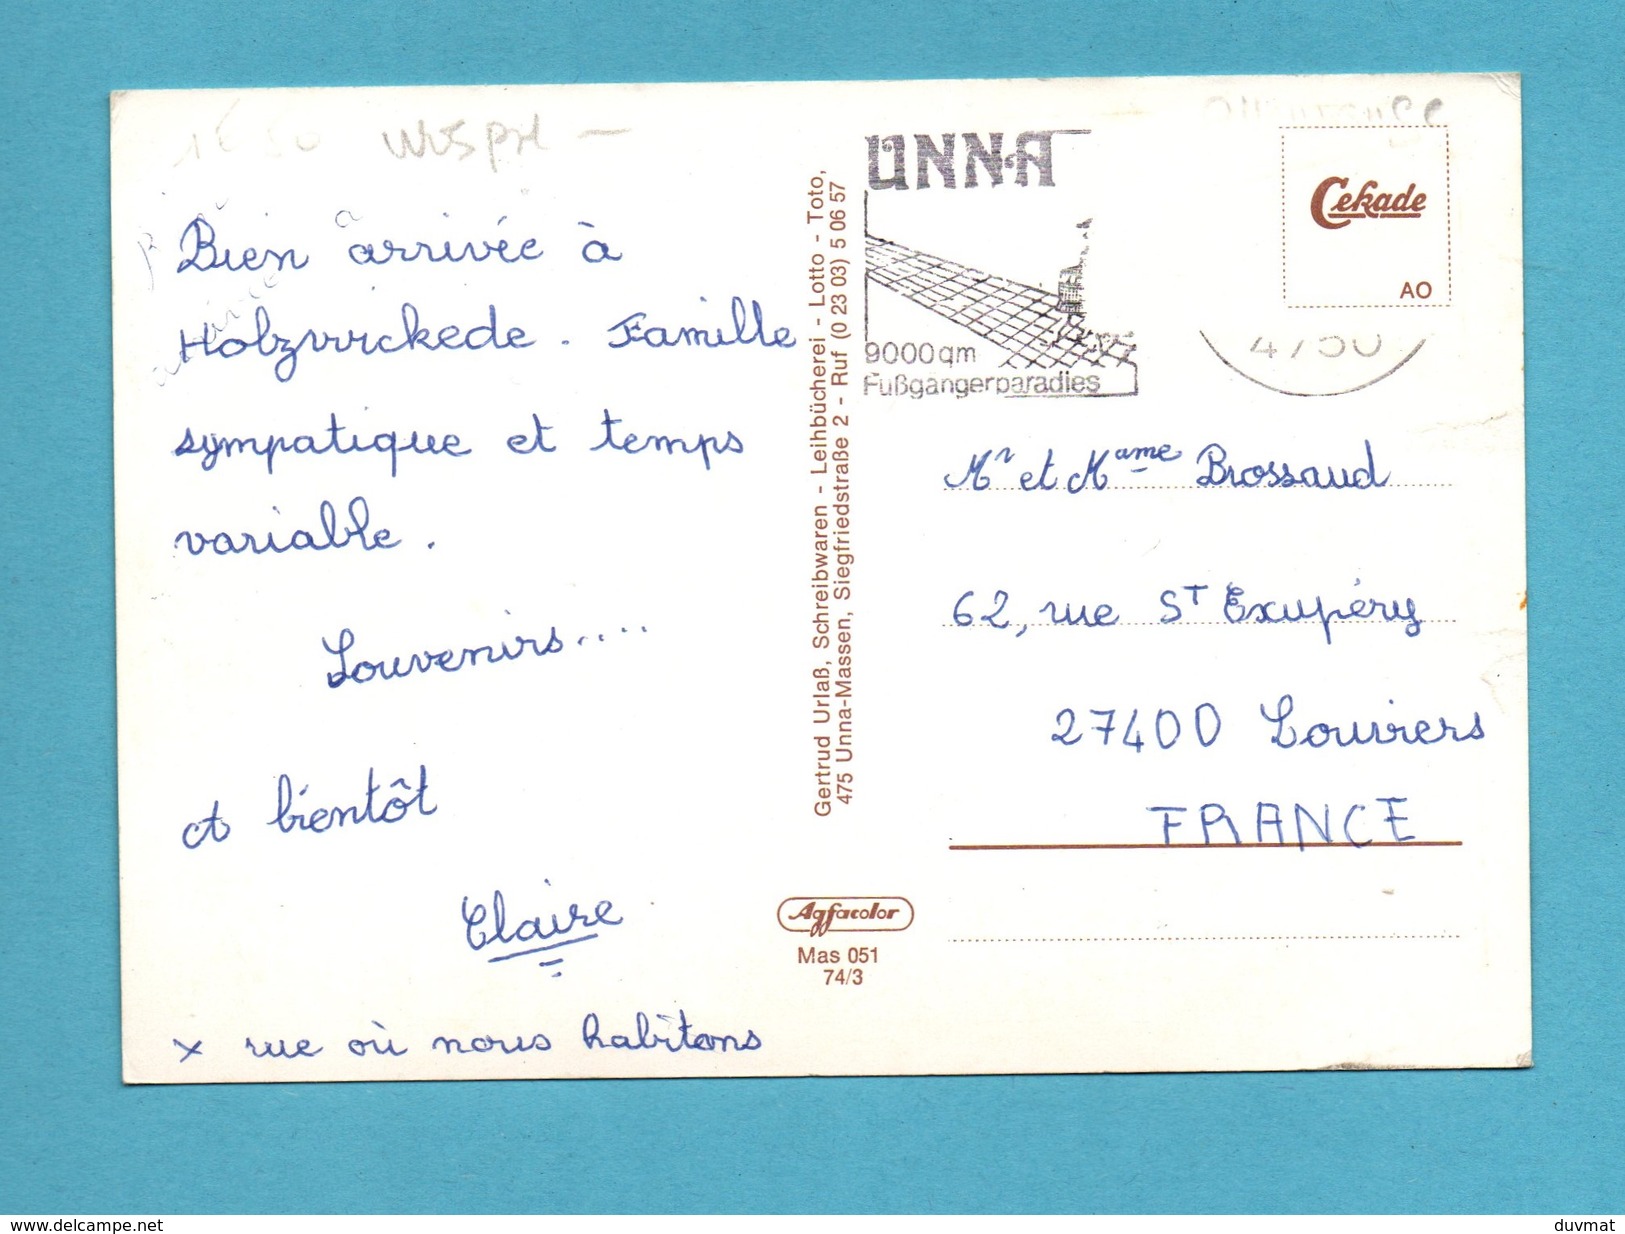 Bien arrivée à
Holzwickede. Famille
sympatique et temps
variable.
Souvenirs....
et bientôt
Claire
x rue où nous habitons
Gertrud Urlaß, Schreibwaren - Leihbücherei - Lotto - Toto,
475 Unna-Massen, Siegfriedstraße 2 - Ruf (0 23 03) 5 06 57
Agfacolor
Mas 051
74/3
UNNA
9000qm
Fußgängerparadies
4750
Cekade
AO
Mr et Mame Brossaud
62, rue ST Exupéry
27400 Louviers
FRANCE
www.delcampe.net
duvmat